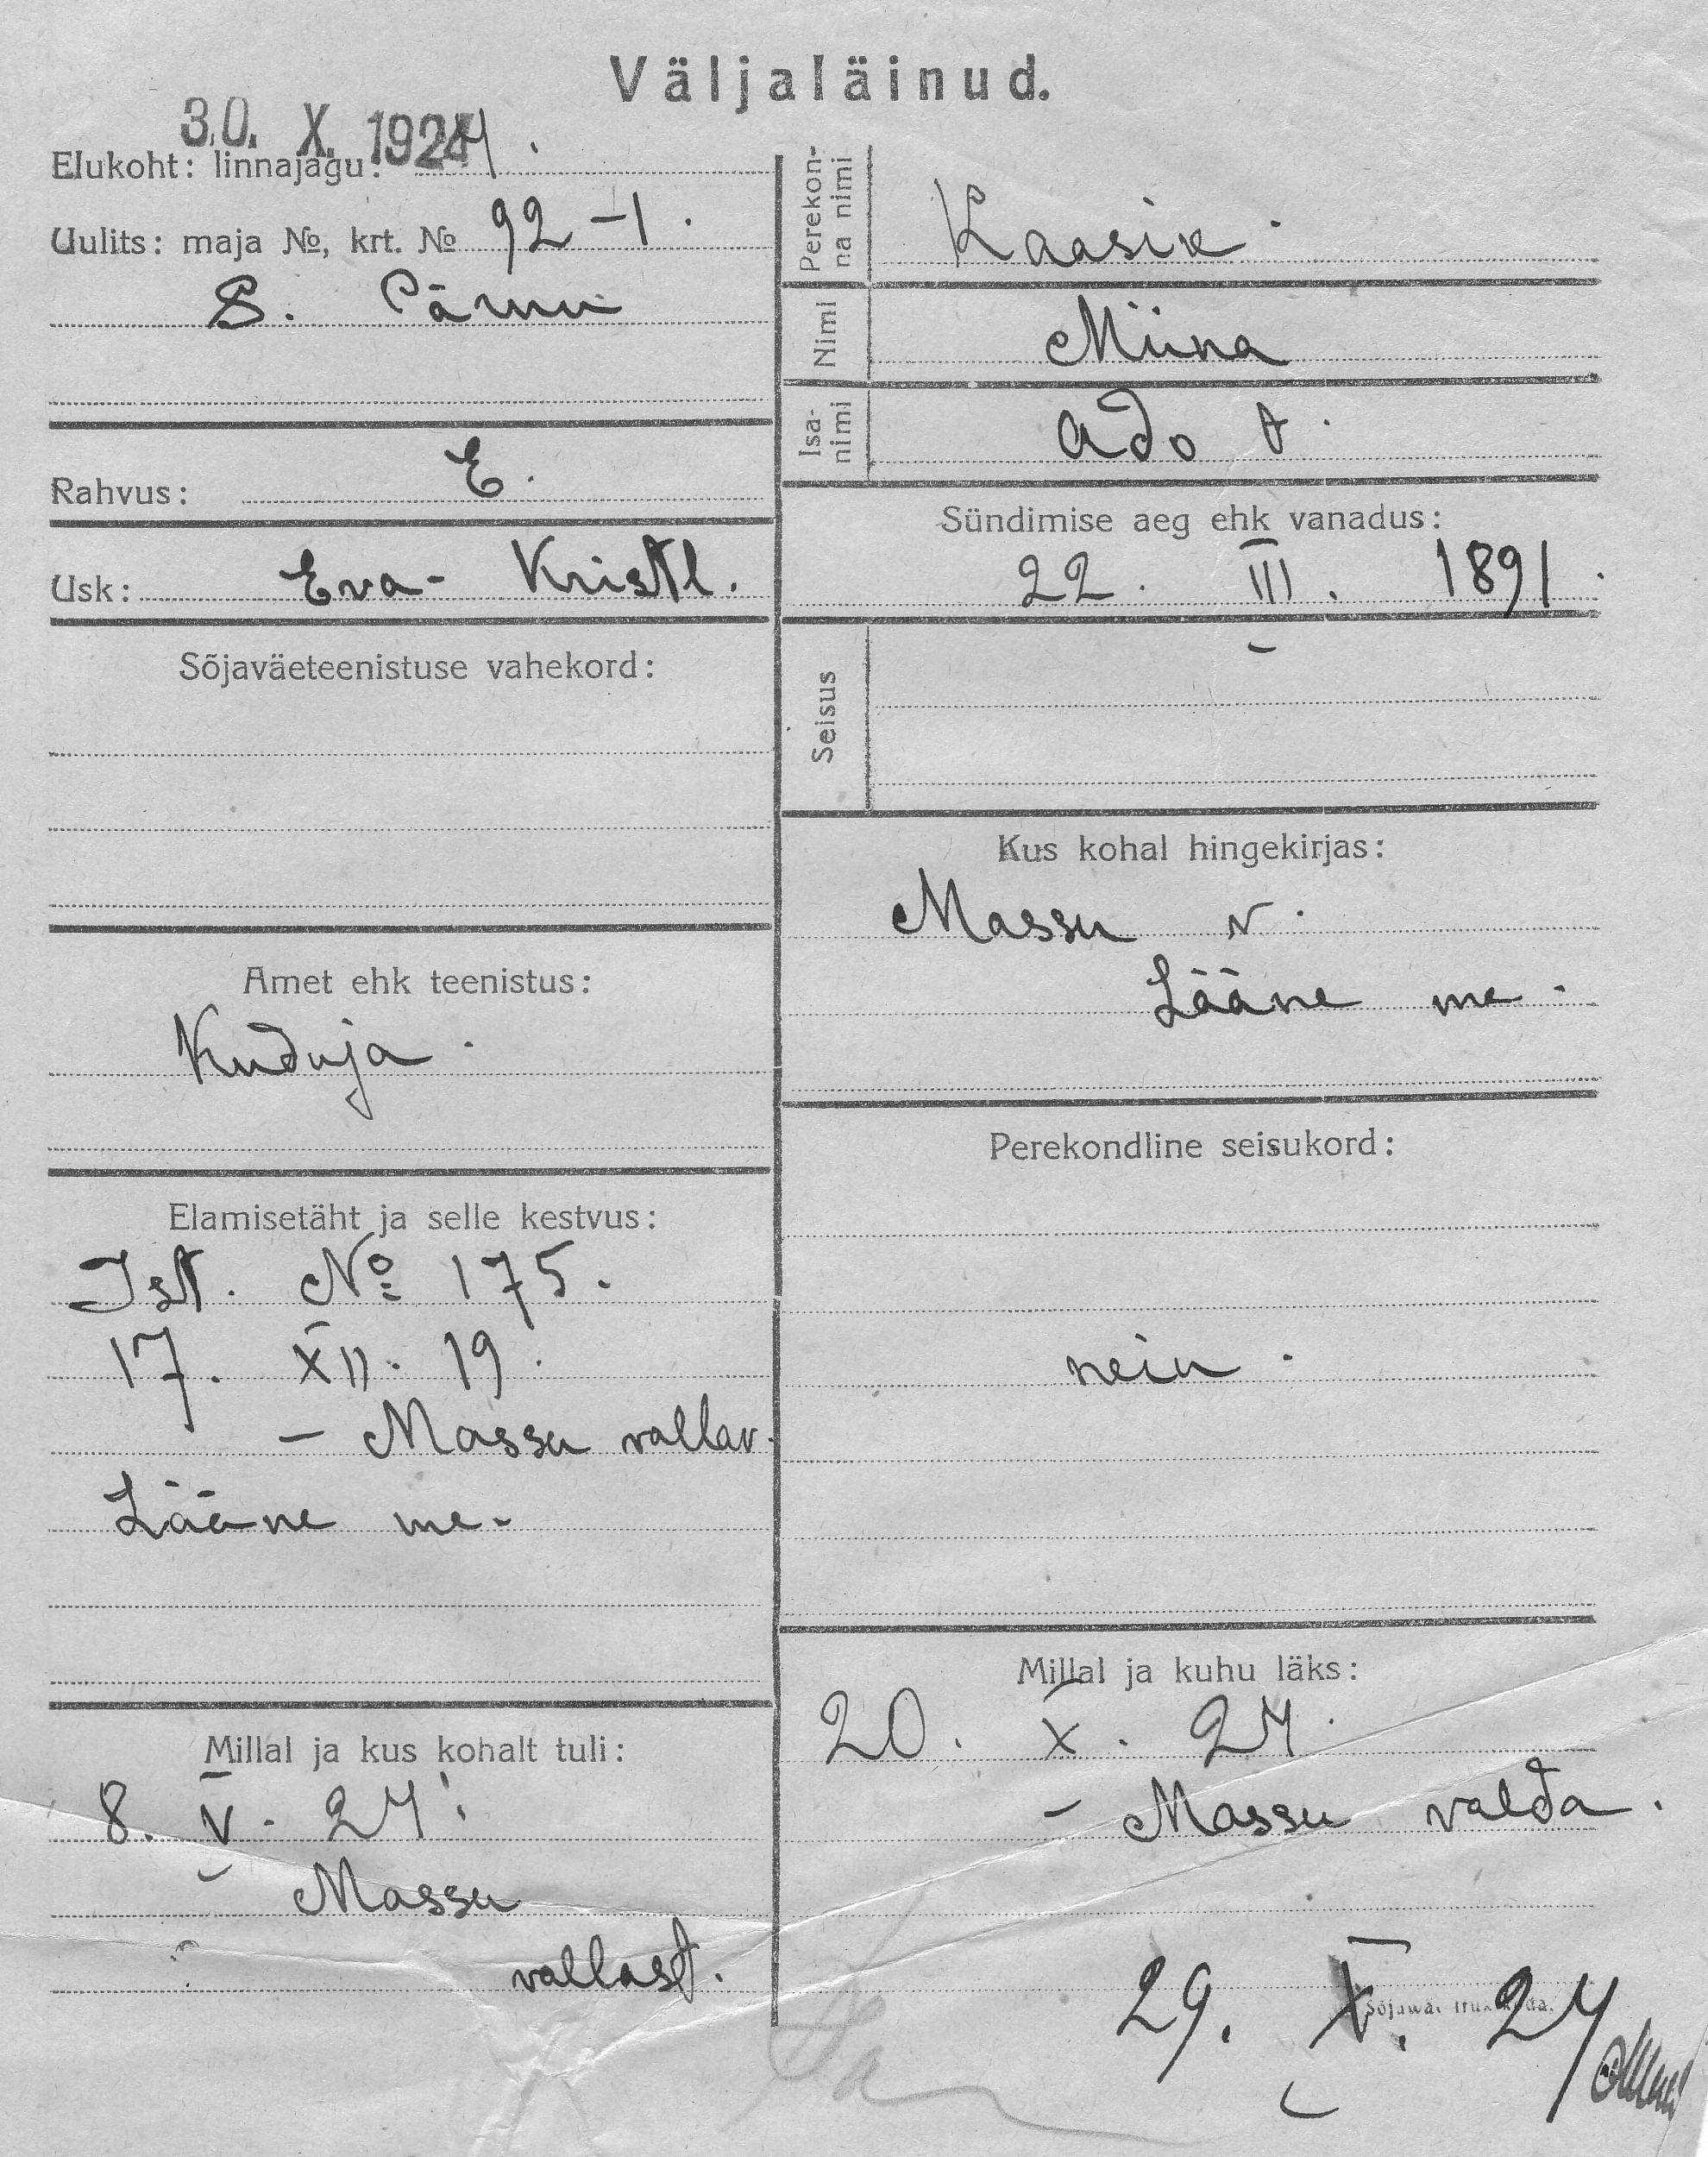 Väljaläinud.
30. X. 1924.
Elukoht: linnajagu:
Uulits: maja №, krt. № 92-1.
S. Pärnu
Rahvus: E.
Usk: Eva- Kristl.
Sõjaväeteenistuse vahekord:
Amet ehk teenistus:
Kuduja.
Elamisetäht ja selle kestvus:
Ist. № 175.
17. XII. 19.
- Massu vallav.
Lääne me.
Millal ja kus kohalt tuli:
8. V. 24.
Massu
vallast.
Perekon-
na nimi
Kaasik.
Nimi Miina
Isa-
nimi
Ado t.
Sündimise aeg ehk vanadus:
22. III. 1891.
Seisus
Kus kohal hingekirjas:
Massu v.
Lääne me.
Perekondline seisukord:
nein.
Millal ja kuhu läks:
20. X. 24.
- Massu valda.
29. X. 24